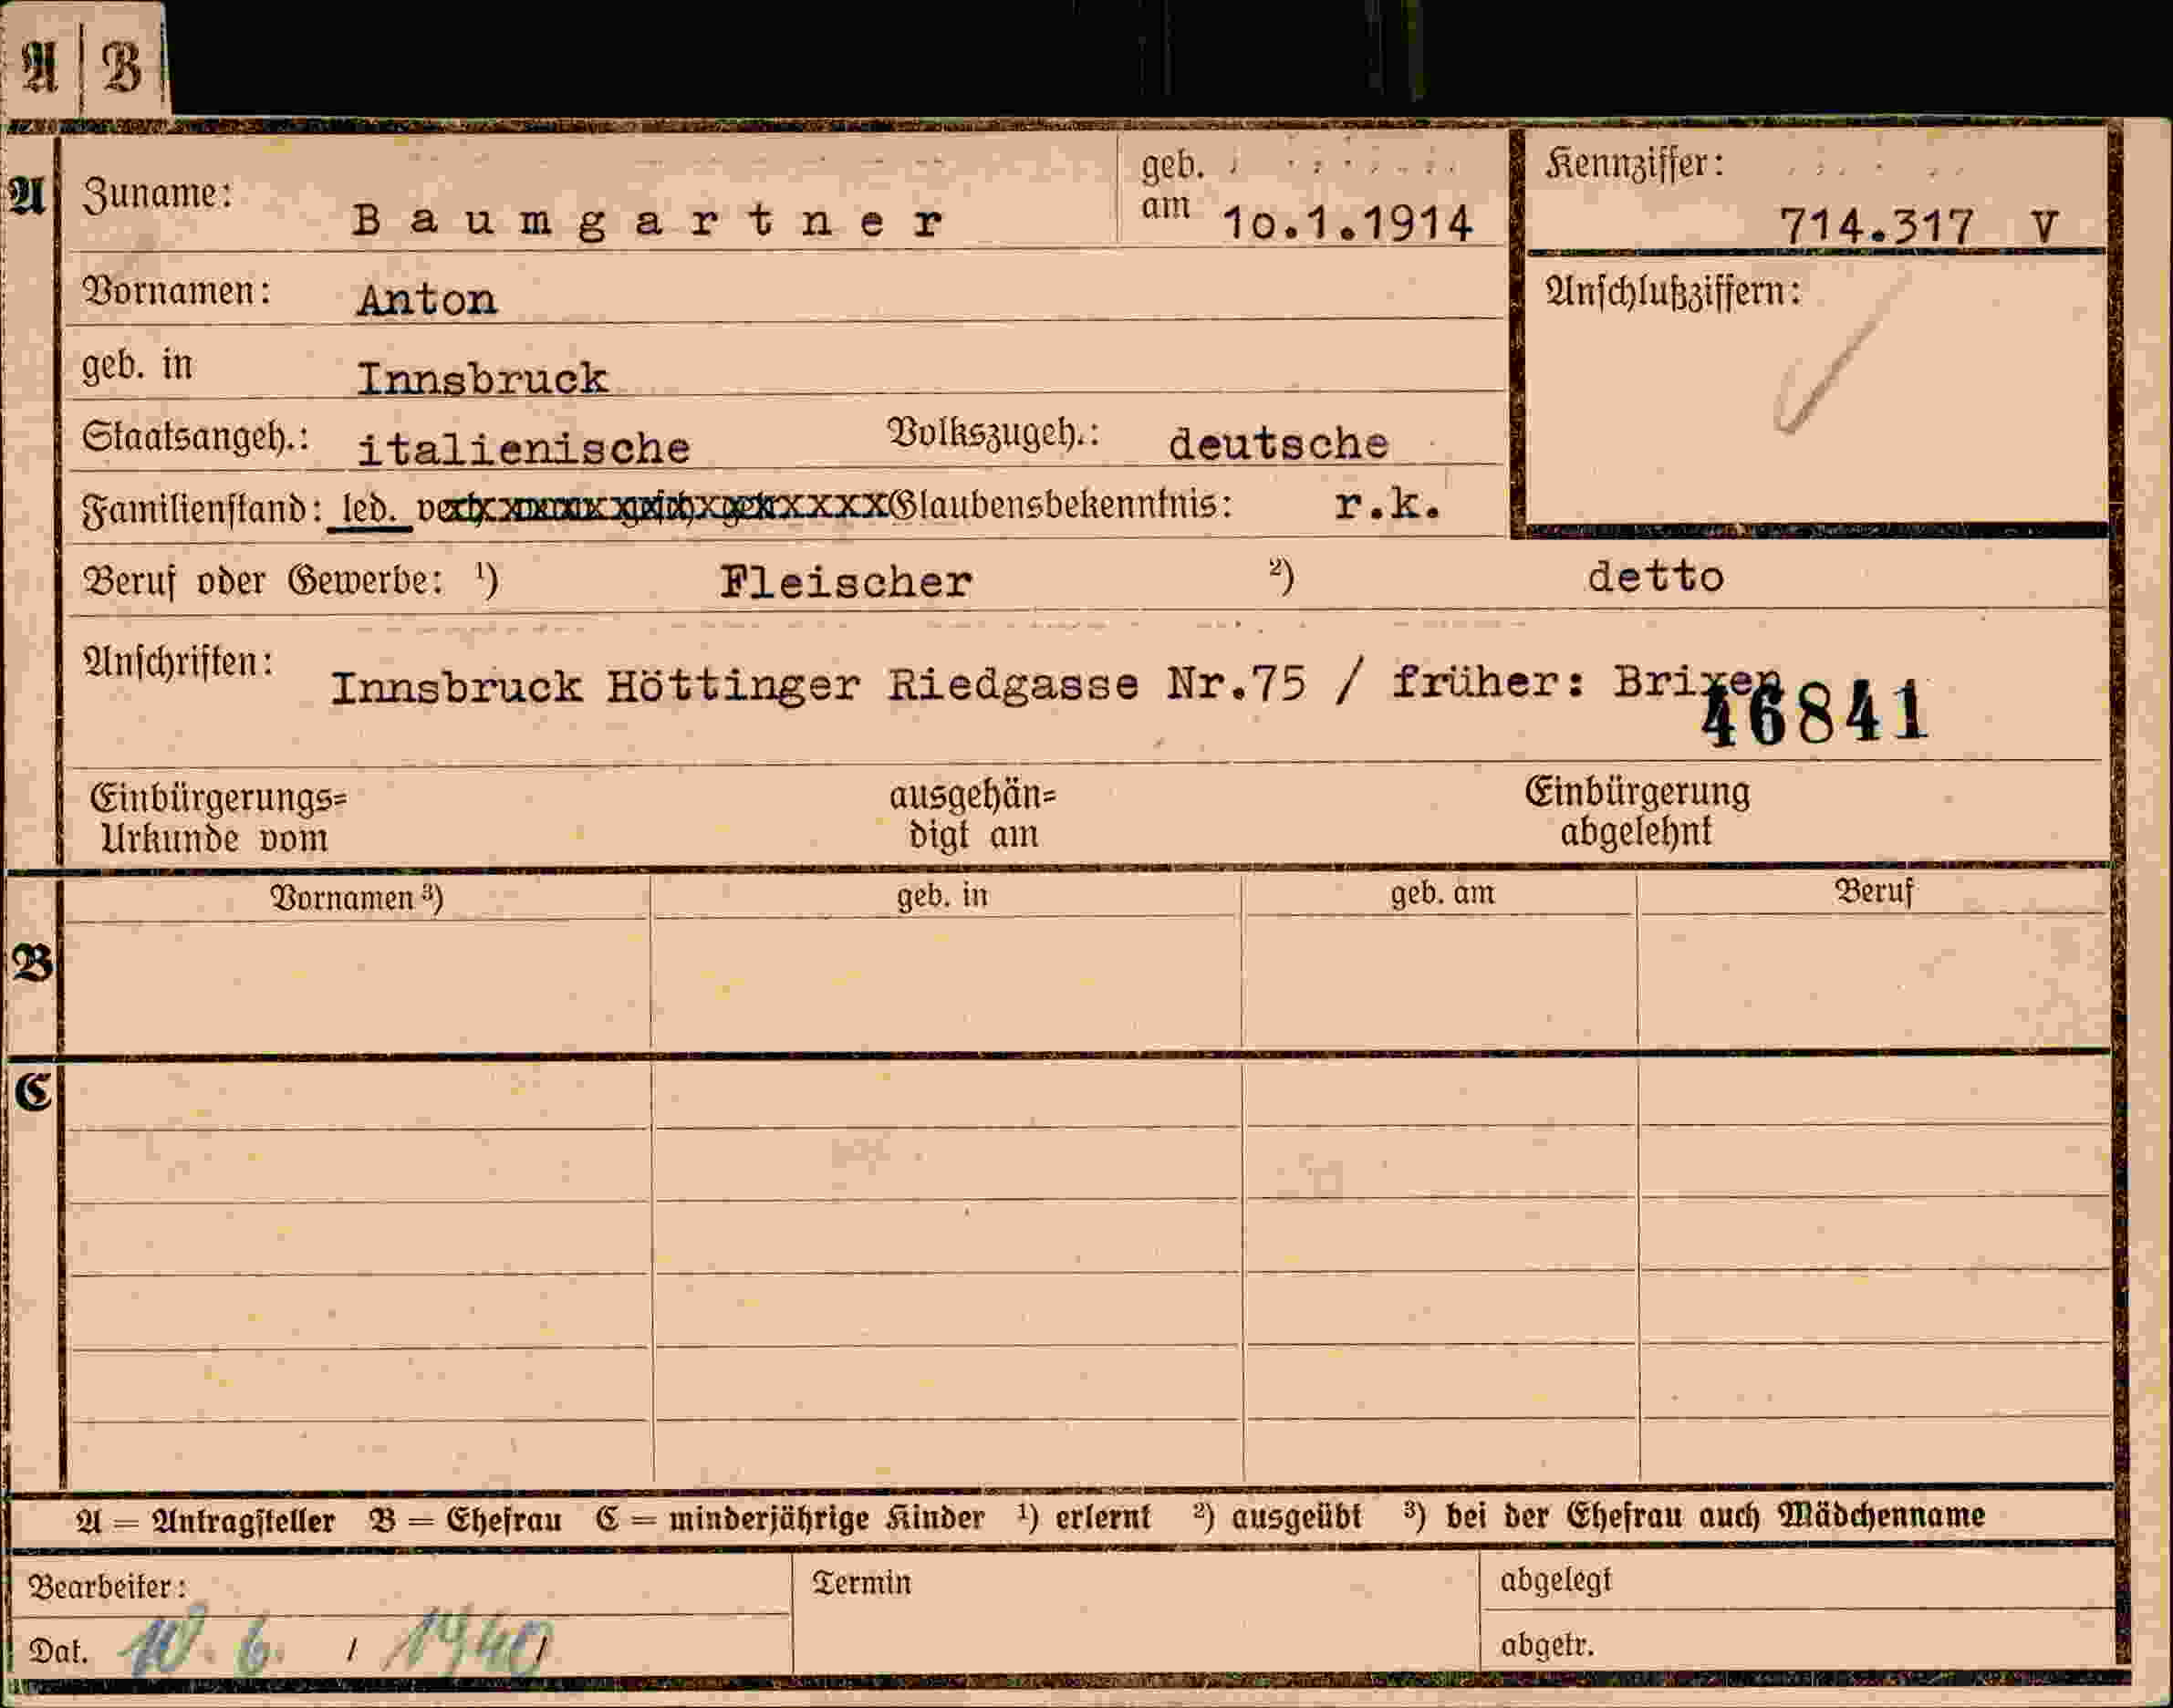 A | B
A
Zuname: Baumgartner geb. am 10.1.1914 Kennziffer: 714.317 V
Vornamen: Anton Anschlußziffern:
geb. in Innsbruck
Staatsangeh.: italienische Volkszugeh.: deutsche
Familienstand: led. Glaubensbekenntnis: r.k.
Beruf oder Gewerbe: ¹) Fleischer ²) detto
Anschriften: Innsbruck Höttinger Riedgasse Nr.75 / früher: Brixen
46841
Einbürgerungs= ausgehän= Einbürgerung
Urkunde vom digt am abgelehnt
Vornamen ³) geb. in geb. am Beruf
B
C
A = Antragsteller B = Ehefrau C = minderjährige Kinder ¹) erlernt ²) ausgeübt ³) bei der Ehefrau auch Mädchenname
Bearbeiter: Termin abgelegt
Dat. 10.6. / 1940 / abgetr.